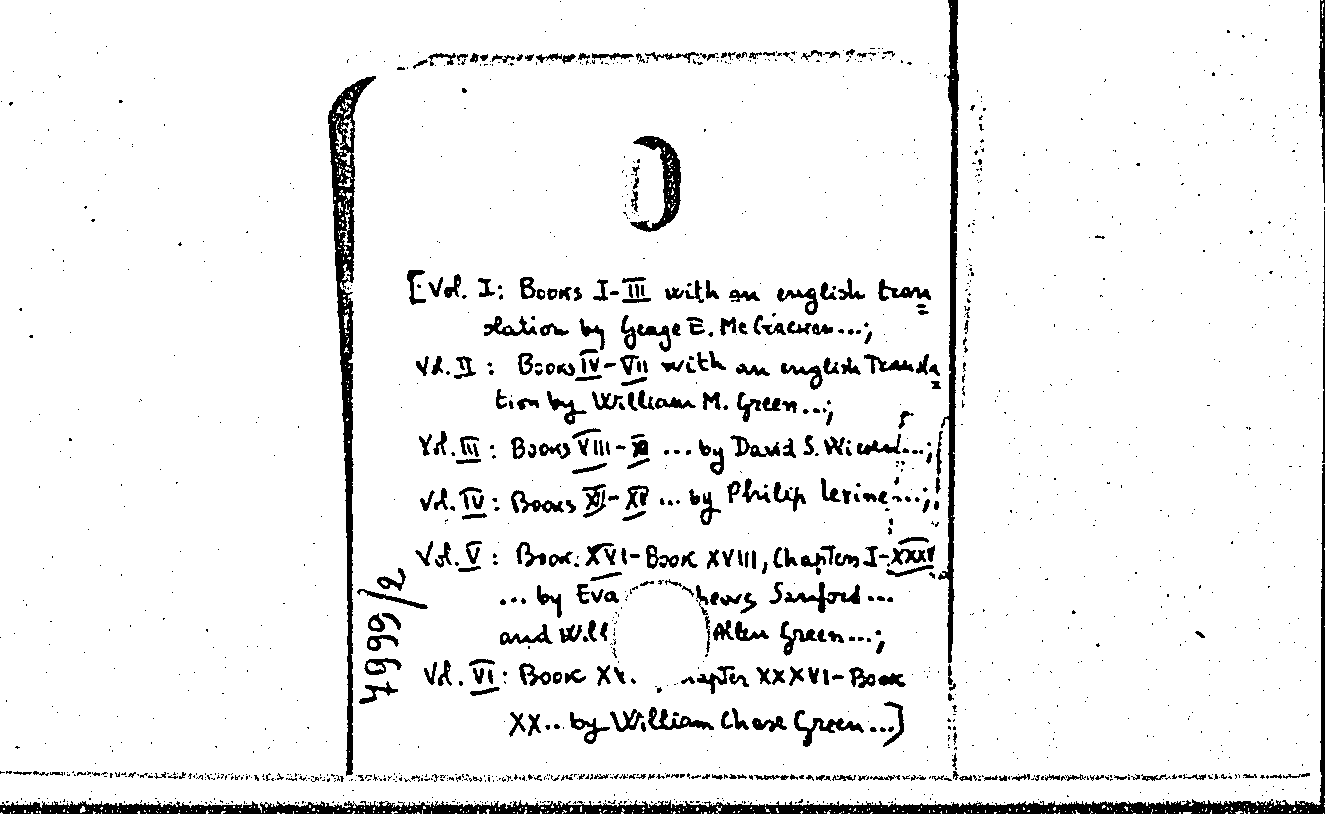 [Vol. I: Books I-III with an english tran
slation by George E. McCracken...;
Vol. II: Books IV-VII with an english Transla
tion by William M. Green...;
Vol. III: Books VIII-XI ... by David S. Wiesen...;
Vol. IV: Books XII-XV ... by Philip Levine...;
Vol. V: Book. XVI-Book XVIII, Chapters I-XXXV
... by Eva hews Sanford...
and Will Allen Green...;
Vol. VI: Book XV. hapter XXXVI-Book
XX... by William Chase Green...]
7999/2